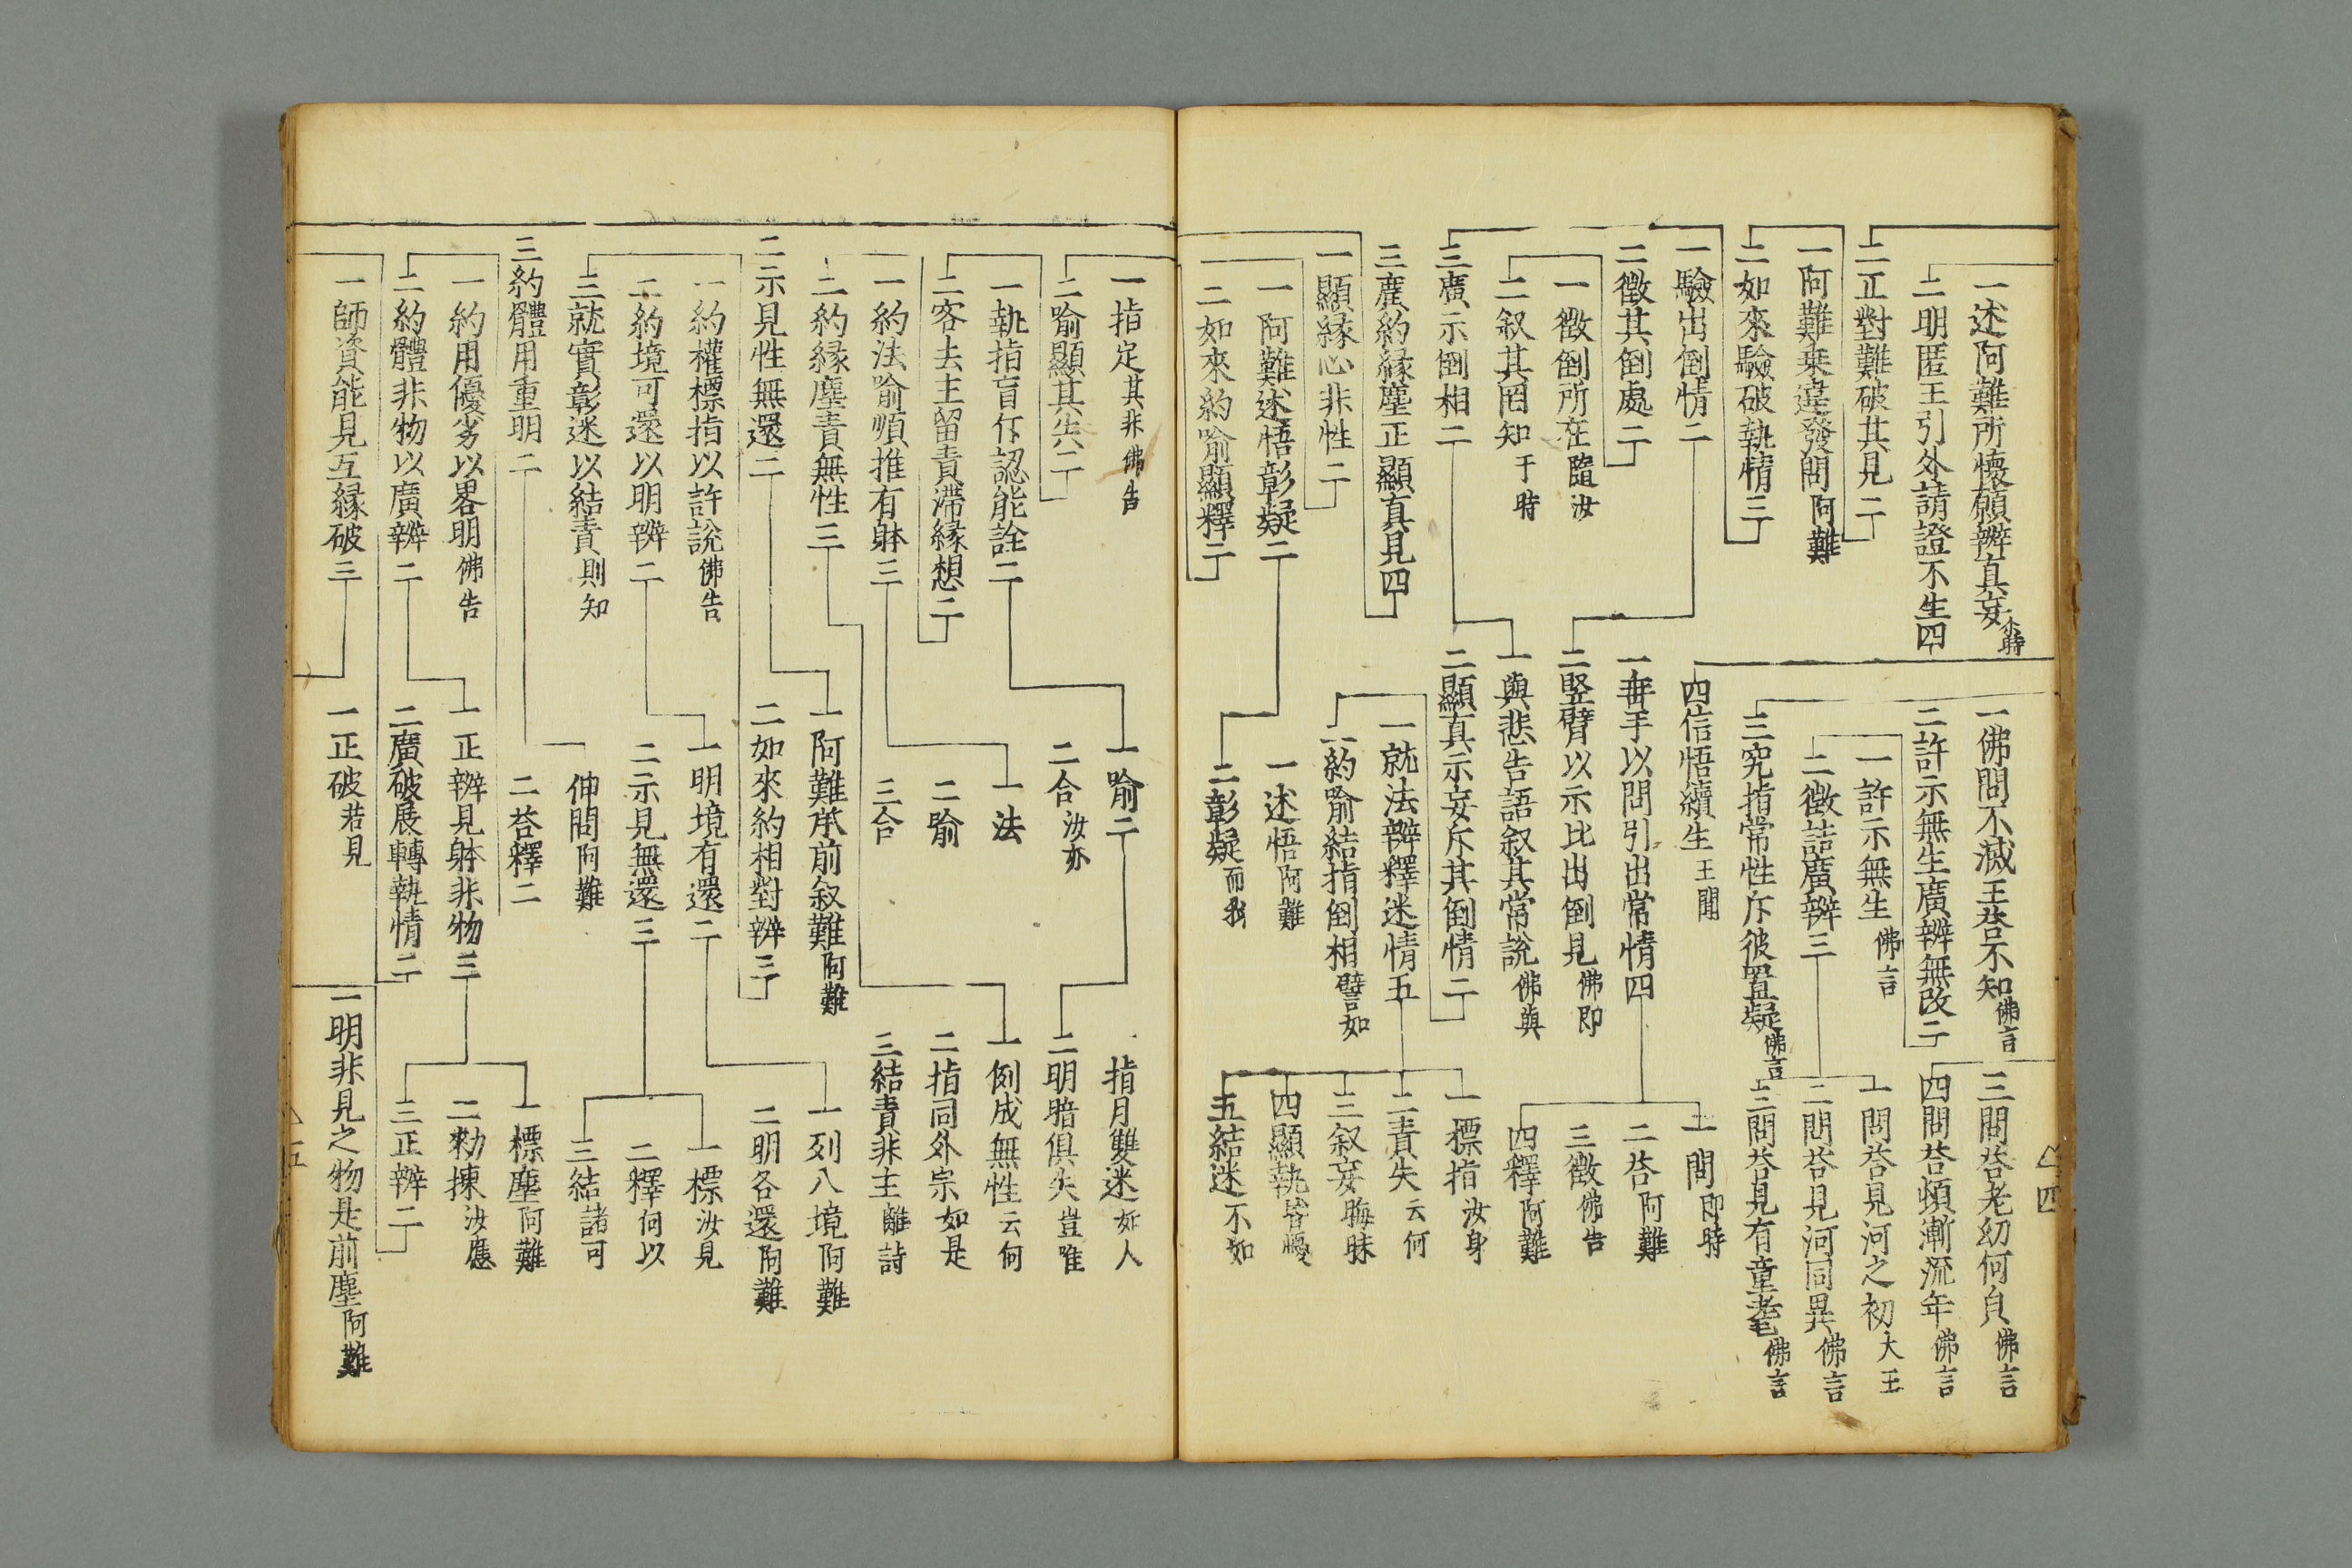 一述阿難所懷願辨真妄 本時
二明匿王引外請證不生四
二正對難破其見二
一阿難乗違發問 阿難
二如來驗破執情三
一驗出倒情二
二徵其倒處二
一徵倒所在 隨汝
二叙其罔知 于時
三廣示倒相二
三廣約緣塵正顯真見四
一顯緣心非性二
一阿難述悟彰疑二
二如來約喻顯釋二
一佛問不滅王荅不知 佛言
二許示無生廣辨無改二
一許示無生 佛言
二徵詰廣辨三
三究指常性斥彼置疑 佛言
四信悟續生 王聞
一垂手以問引出常情四
二竪臂以示比出倒見 佛即
一與悲告語叙其常說 佛與
二顯真示妄斥其倒情二
一就法辨釋迷情五
二約喻結指倒相 譬如
一述悟 阿難
二彰疑 而我
三問荅老幼何自 佛言
四問荅頓漸流年 佛言
一問荅見河之初 大王
二問荅見河同異 佛言
三問荅見有童耄 佛言
一問 即時
二荅 阿難
三徵 佛告
四釋 阿難
一標指 汝身
二責失 云何
三叙妄 晦昧
四顯執
五結迷 不如
△四
一指定其非 佛告
二喻顯其失二
一執指盲仛認能詮二
二客去主留責滯緣想二
一約法喻順推有躰三
二約緣塵責無性三
二示見性無還二
一約權標指以許說 佛告
二約境可還以明辨二
三就實彰迷以結責 則知
三約體用重明二
一約用優劣以畧明 佛告
二約體非物以廣辨二
一師資能見互緣破三
一喻二
二合 汝亦
一法
二喻
三合
一阿難承前叙難 阿難
二如來約相對辨三
一明境有還二
二示見無還三
伸問 阿難
二荅釋二
一正辨見躰非物三
二廣破展轉執情二
一正破 若見
指月雙迷 如人
二明暗俱失 豈唯
一例成無性 云何
二指同外宗 如是
三結責非主 離諸
一列八境 阿難
二明各還 阿難
一標 汝見
二釋 何以
三結 諸可
一標塵 阿難
二勑揀 汝應
三正辨二
一明非見之物是前塵 阿難
△五